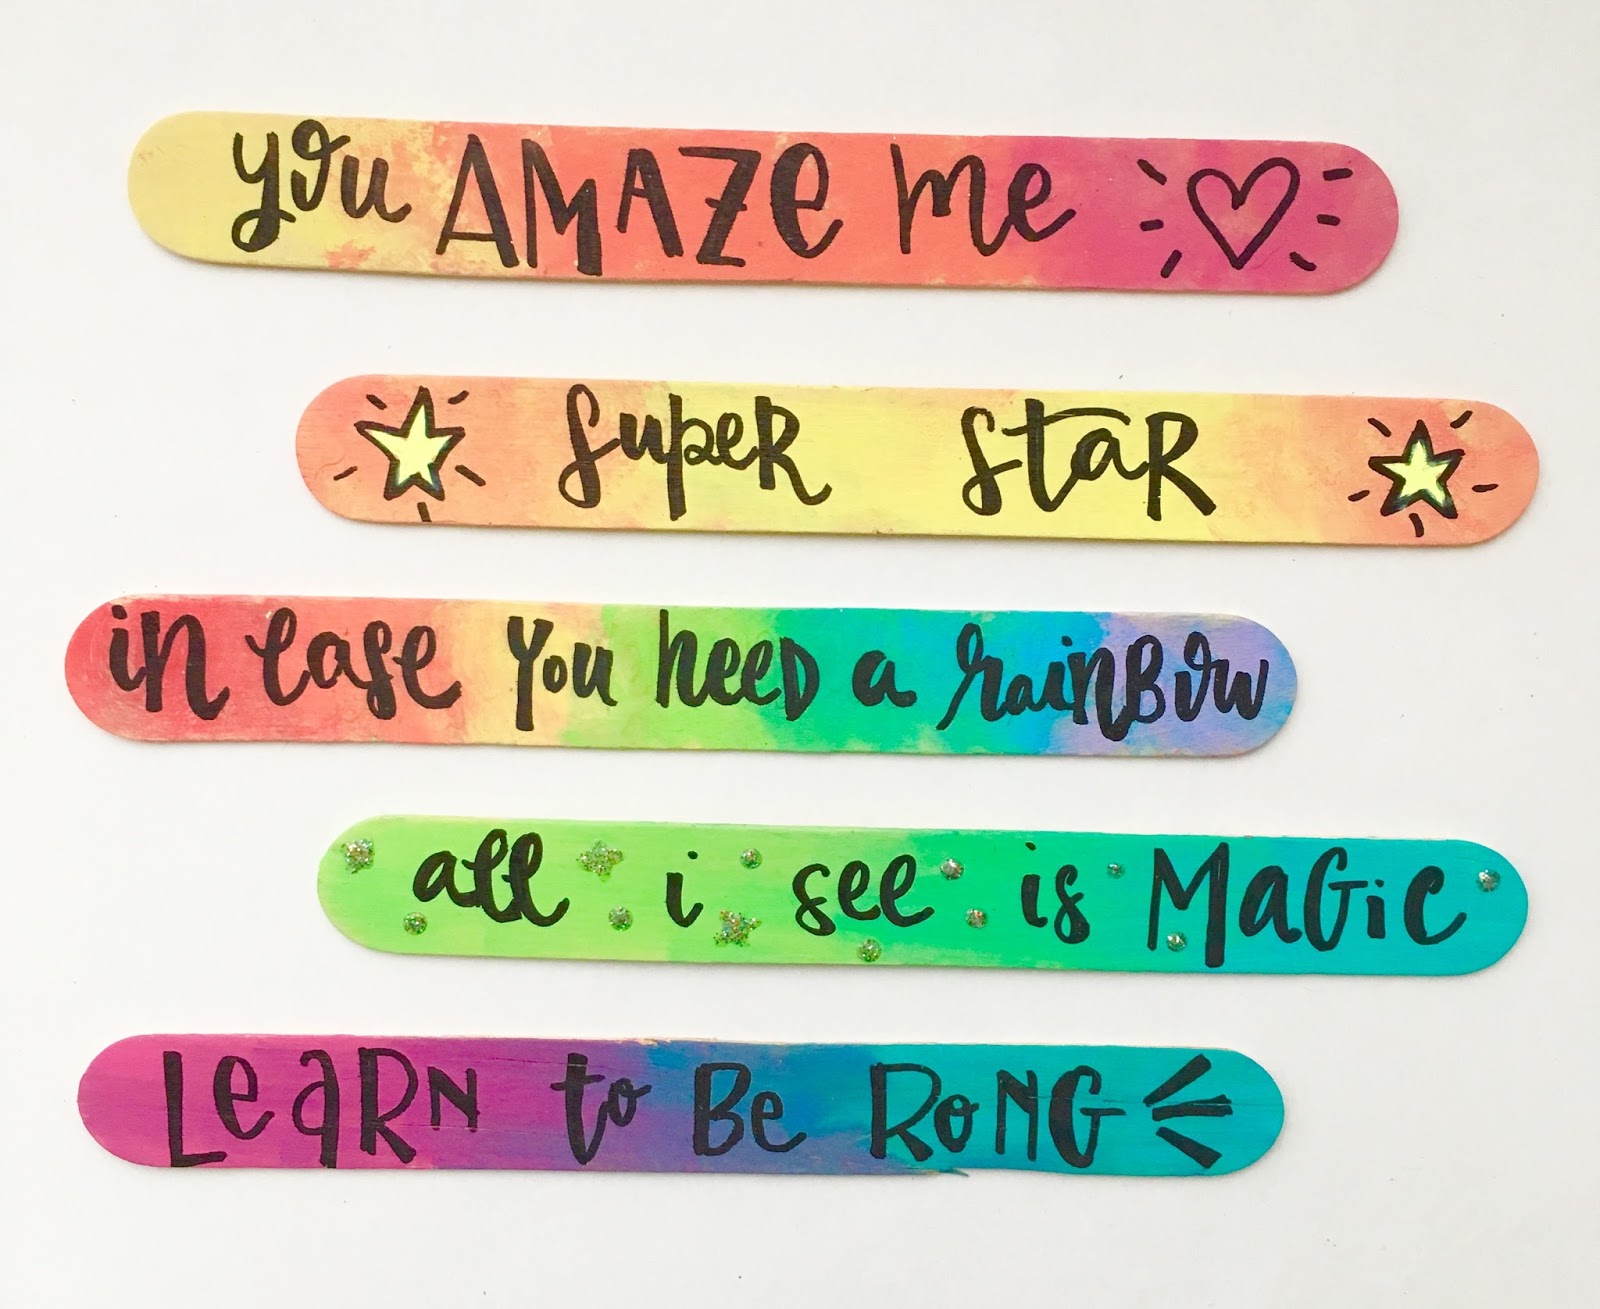 you AMAZE me
super star
in case you need a rainbow
all i see is MAGiC
LeaRN to Be RoNG